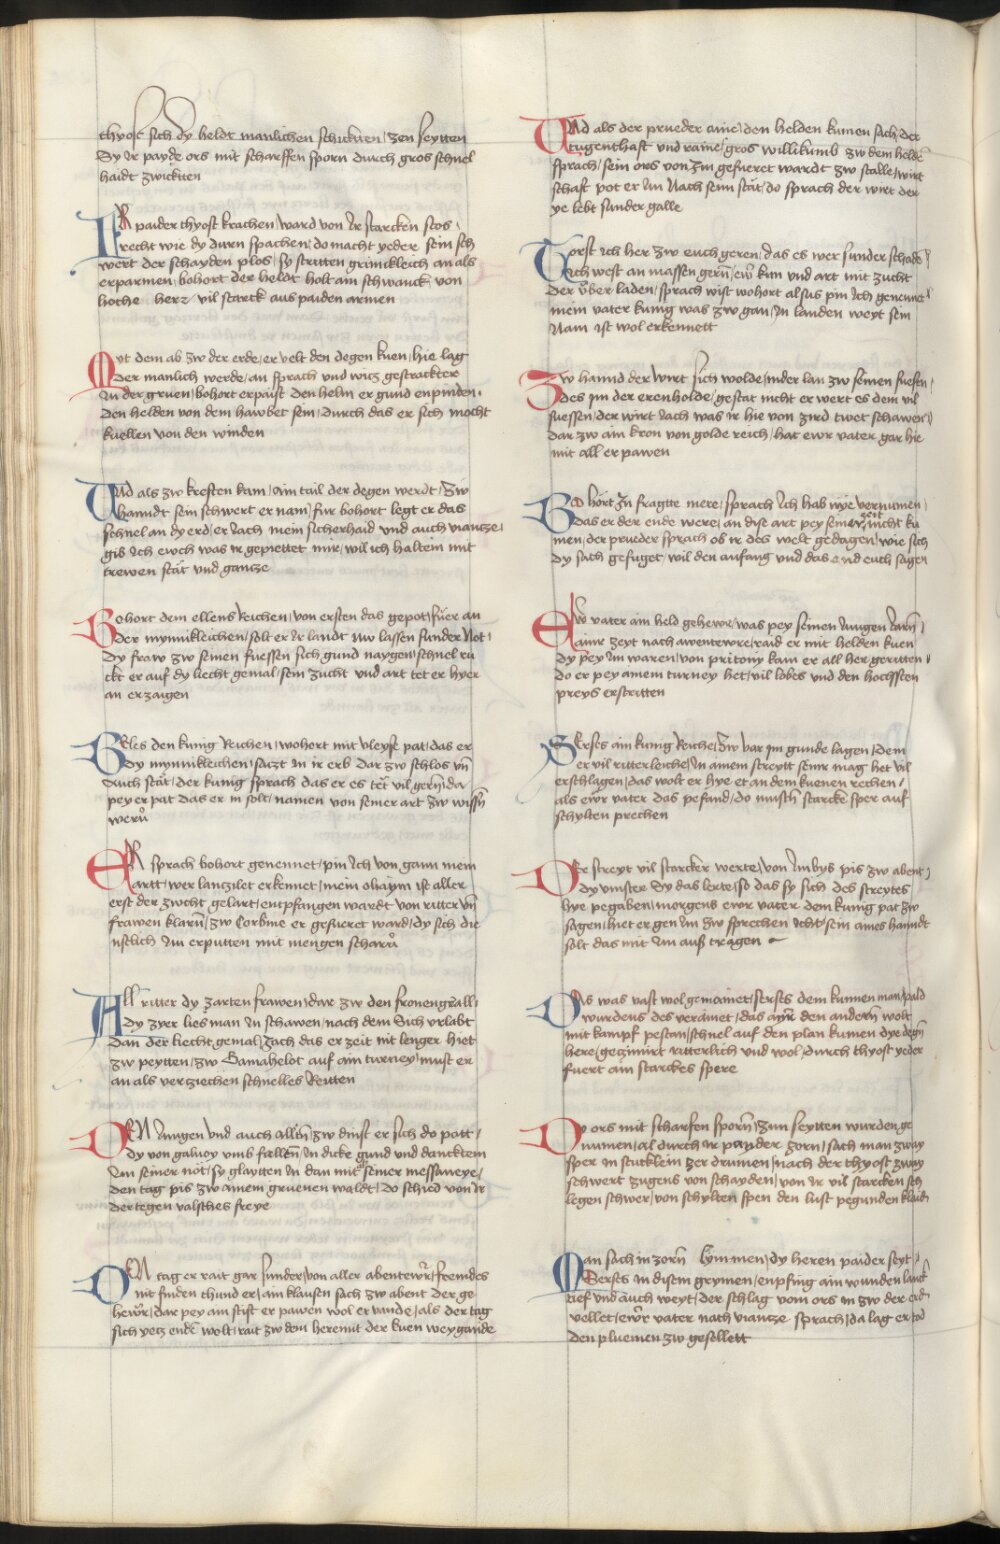 thyost sich dy heldt manlichen schickten / zen seytten
Dy ir payde ors mit scharffen sporn durch gros schnel
haidt zwickten
IR paider thyost krachen / ward von ir starcken stos /
recht wie dy durn spachen / do macht yeder sein sch
wert der schayden plos / sy stritten grimickleich an als
erparmen / bohort der heldt holt ain schwanck von
hoche herz / vil starck aus paiden armen
Myt dem ab zw der erde / er velt den degen kuen / hie lag
der manlich werde / an sprach und witz gestrackter
in der gruen / bohort erpaist den helm er gund enpinden /
Den helden von dem hawbet sein / durch das er sich mocht
kuellen von den winden
Und als zw kreften kam / ain tail der degen werdt / Zw
hanndt sein schwert er nam / fur bohort legt er das
schnel an dy erd / er iach mein sicherhaid und auch vianntze /
gib ich ewch was ir gepiettet mir / wil ich haltein mit
trewen stät und gantze
Bohort dem ellens reichen / von ersten das gepot / fuer an
der mynnikleichen / solt er ir landt nw lassen sunder not /
Dy fraw zw seinen fuessen sich gund naygen / schnel ru
ckt er auf dy liecht gemal / sein zucht und art tet er hyer
an erzaigen
Beles den kunig reichen / wohort mit vleyse pat / das er
dy mynnikleichen / satzt in ir erb dar zw schlos vn̄
Auch stät / der kunig sprach das er es tet vil gern̄ / dar
pey er pat das er in solt / namen von seiner art zw wissn̄
wern̄
ER sprach bohort genennet / pin ich von gaun mein
artt / wer lanzilet erkennet / mein ohaim ist aller
erst der zwcht gelart / entpfangen wardt von ritter vn̄
frawen klarn̄ / zw Corbine er gefueret ward / dy sich die
nstlich im erputten mit mengen scharn̄
All ritter dy zarten frawen / dar zw den fronengrall /
dy zyer lies man in schawen / nach dem sich vrlabt
dan der liecht gemal / iach das er zeit nit lenger hiet
zw peytten / zw Gamahelot auf ain turney / must er
an als verziechen schnelles reitten
DEN Jungen und auch alltn̄ / zw dinst er sich do patt /
dy von galuoy vmb fielltn̄ / in dicke gund und danckten
im seiner nöt / sy glaytten in dan mit seiner messaneye /
den tag pis zw ainem gruenen waldt / do schied von ir
der tegen valsches freye
DEN tag er rait gar sunder / von aller abentewr / fremdes
nit finden thund er / ain klausen sach zw abent der ge
hewr / dar pey am stift er pawen wol er vande / als der tag
sich yetz ende wolt / rait zw dem heremit der kuen weygande
Und als der prueder aine / den helden kumen sach / der
tugenthaft und raine / gros willikumb zw dem helde
sprach / sein ors von im gefueret wardt zw stalle / wirt
schaft pot er im nach seim stät / do sprach der wirt der
ye lebt sunder galle
Torst ich her zw euch geren / das es wer sunder schade
ich west an massen gern̄ / ewr kun und art mit zucht
der vber laden / sprach wist wohort alsus pin ich genennet
mein vater kunig was zw gan / in landen weyt sein
Nam ist wol erkennett
Zw hannd der wirt sich wolde / nider lan zw seinen fuesen /
des im der erenholde / gestat nicht er wert es dem vil
suessen / der wirt iach was ir hie von zird twet schawen
dar zw ain kron von golde reich / hat ewr vater gar hie
mit all erpawen
Bohort in fragtte mere / sprach ich hab nye vernumen /
das er der ende were / an dise art pey seiner zeit nicht ku
men / der prueder sprach ob ir des welt gedagen / wie sich
dy sach gefueget / wil den anfang und das end euch sagen
Ew vater ain held gehewr / was pey seinen Jungen Jarn̄ /
aine zeyt nach awentewre / raid er mit helden kuen
dy pey im waren / von pritony kam er all her geritten /
do er pey ainem turney het / vil lobes und den hochsten
preys erstritten
Serses ain kunig reiche / Zw var im gunde lagen / dem
er vil ritterleiche / in ainem streytt seiner mag het vil
erschlagen / das wolt er hye et an dem kuenen rechen /
als ewr vater das pefand / do mustn̄ starcke sper auf
schylten prechen
Der streyt vil starcker werte / von Jmbys pis zw abent /
dy vinster dy das lerte / so das sy sich des streytes
hye pegaben / morgens ewr vater dem kunig pat zw
sagen / hiet er gen im zw sprechen icht / sein aines hanndt
solt das mit im auß tragen
Das was vast wol gemainet / serses dem kunnen man / pald
wurdens des verainet / das ainr den andern̄ wolt
mit kampf pestan / schnel auf den plan kumen dye degn̄
here / gezimirt ritterlich und wol / durch thyost yeder
fuert ain starckes spere
Dy ors mit scharfen sporn̄ / zun seytten wurden ge
numen / al durch ir payder zorn / sach man zway
sper in stucklein zer drumen / nach der thyost zway
schwert zugens von schayden / von ir vil starcken sch
legen schwer / von schylten spen den lust pegunden klaidn̄
Man sach in zorn̄ lymmen / dy heren paider seyt /
Serses in disem grymen / enpfing ain wunden lanck
tief und auch weyt / der schlag vom ors in zw der erd
vellet / ewr vater nach vianntze sprach / da lag er tod
den pluemen zw gesellett